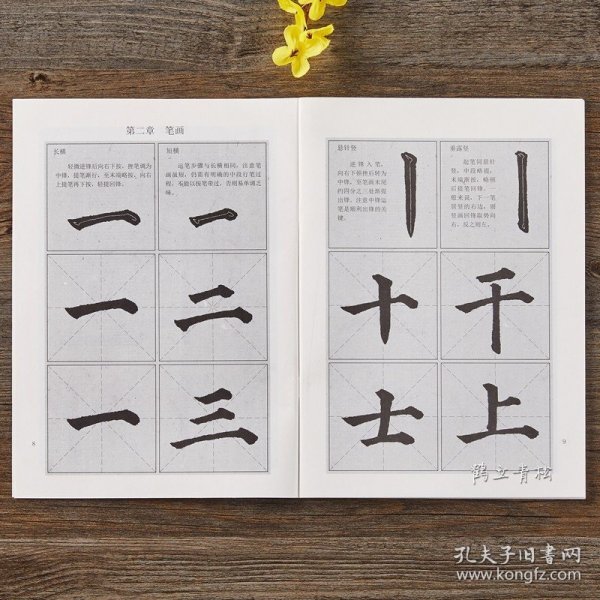 第二章 笔画
长横
轻微逆锋后向右下按，使笔调为
中锋，提笔渐行，至末端略按，向右
上提笔再下按，轻提回锋。
一
一
一
短横
运笔步骤与长横相同，注意笔
画虽短，仍需有明确的中段行笔过
程，不能以按笔带过，否则易单调乏
味。
一
二
三
8
悬针竖
逆锋入笔，
向右下顿挫后转为
中锋，至笔画末尾
约四分之一处渐提
出锋。注意中锋运
笔是顺利出锋的关
键。
丨
十
士
垂露竖
起笔同悬针
竖，中段略提，
末端渐按，略顿
后提笔回锋。一
般来说，下一笔
居竖的右边，则
竖画回锋取势向
右，反之则左。
丨
干
上
9
鹤立青松
孔夫子旧书网
www.kongfz.com